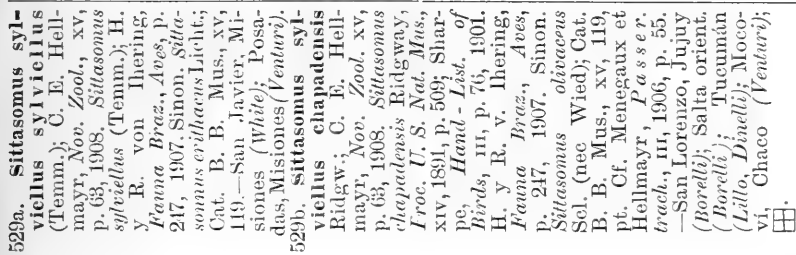 529a. Sittasomus syl-
vicllus sylvicllus
(Temm.); C. E. Hell-
mayr, Nov. Zool., xv,
p. 63, 1908. Sittasomus
sylviellus (Temm.); H.
y R. von Ihering,
Fauna Braz., Aves, p.
247, 1907. Sinon. Sitta-
somus erithacus Licht.,
Cat. B. B. Mus., xv,
119.—San Javier, Mi-
siones (White); Posa-
das, Misiones (Venturi).
529b. Sittasomus syl-
vicllus chapadensis
Ridgw.; C. E. Hell-
mayr, Nov. Zool. xv,
p. 63, 1908. Sittasomus
chapadensis Ridgway,
Proc. U. S. Nat. Mus.,
xiv, 1891, p. 509; Shar-
pe, Hand-List. of
Birds, III, p. 76, 1901.
H. y R. v. Ihering,
Fauna Braz., Aves,
p. 247, 1907. Sinon.
Sittasomus olivaceus
Scl. (nec Wied); Cat.
B. B. Mus., xv, 119,
pt. Cf. Menegaux et
Hellmayr, Passer.
trach., III, 1906, p. 55.
—San Lorenzo, Jujuy
(Borelli); Salta orient.
(Borelli); Tucumán
(Lillo, Dinelli); Moco-
vi, Chaco (Venturi);
⊞.